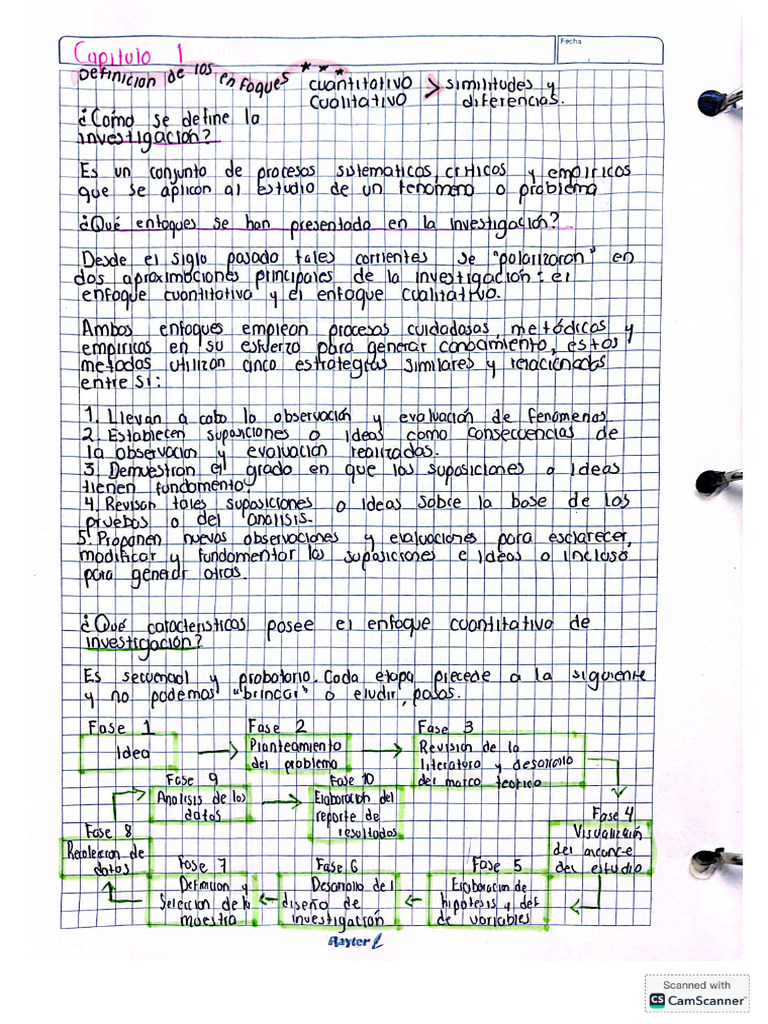 Fecha
Capitulo 1
Definicion de los enfoques ***
cuantitativo
cualitativo > similitudes y
diferencias.
¿Como se define la
investigación?
Es un conjunto de procesos sistematicos, criticos y empiricos
que se aplican al estudio de un fenomeno o problema
¿Qué enfoques se han presentado en la investigación?
Desde el siglo pasado tales corrientes se "polarizaron" en
dos aproximaciones principales de la investigación: el
enfoque cuantitativa y el enfoque cualitativo.
Ambos enfoques emplean procesos cuidadosas, metódicos y
empiricos en su esfuerzo para generar conocimiento, estos
metodos utilizan cinco estrategias similares y relacionadas
entre si:
1. Llevan a cabo la observación y evaluación de fenomenos
2. Establecen suposiciones o ideas como consecuencias de
la observacion y evaluación realizadas.
3. Demuestran el grado en que las suposiciones o ideas
tienen fundamento
4. Revisan tales suposiciones o ideas sobre la base de las
pruebas o del analisis.
5. Proponen nuevas observaciones y evaluaciones para esclarecer,
modificar y fundamentar las suposiciones e ideas o incluso
para generar otras.
¿Qué caracteristicas posee el enfoque cuantitativo de
investigación?
Es secuencial y probatorio. Cada etapa precede a la siguiente
y no podemos "brincar" o eludir, pasos.
Fase 1
Idea
Fase 2
Planteamiento
del problema
Fase 3
Revisión de la
literatura y desarrollo
del marco teorico
Fase 4
Visualización
del alcance
del estudio
Fase 5
Elaboracion de
hipotesis y def
de variables
Fase 6
Desarrollo del
diseño de
investigación
Fase 7
Definicion y
Selección de la
muestra
Fase 8
Recoleccion de
datos
Fase 9
Analisis de los
datos
Fase 10
Elaboracion del
reporte de
resultados
Rayter
Scanned with
CS CamScanner